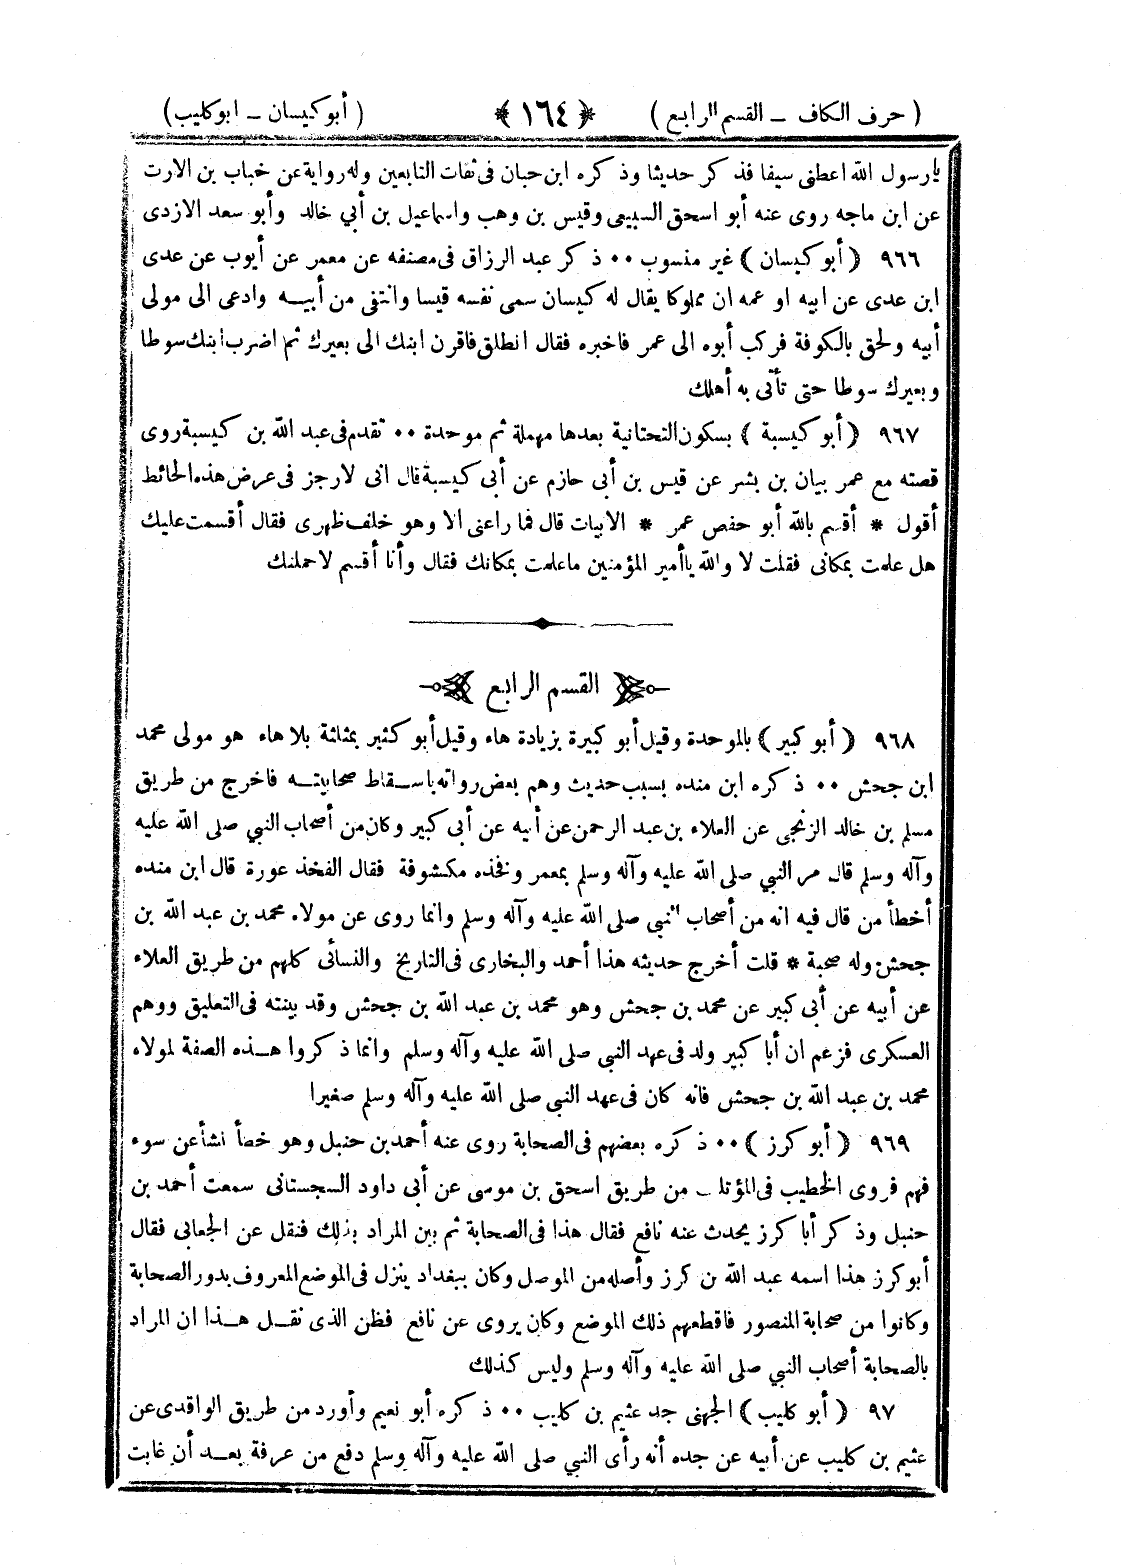 ( حرف الكاف – القسم الرابع ) ﴿ ١٦٤ ﴾ ( أبو كيسان – ابو كليب )
يا رسول الله اعطنى سيفا فذكر حديثا وذكره ابن حبان فى ثقات التابعين وله رواية عن خباب بن الارت
عن ابن ماجه روى عنه أبو اسحق السبيعى وقيس بن وهب واسماعيل بن أبي خالد وأبو سعد الازدى
٩٦٦ ( أبو كيسان ) غير منسوب ٠٠ ذكر عبد الرزاق فى مصنفه عن معمر عن أيوب عن عدى
ابن عدى عن ابيه او عمه ان مملوكا يقال له كيسان سمى نفسه قيسا وانتفى من أبيـــه وادعى الى مولى
أبيه ولحق بالكوفة فركب أبوه الى عمر فاخبره فقال انطلق فاقرن ابنك الى بعيرك ثم اضرب ابنك سوطا
وبعيرك سوطا حتى تأتى به أهلك
٩٦٧ ( أبو كيسبة ) بسكون التحتانية بعدها مهملة ثم موحدة ٠٠ تقدم فى عبد الله بن كيسبة روى
قصته مع عمر بيان بن بشر عن قيس بن أبى حازم عن أبى كيسبة قال انى لارجز فى عرض هذه الحائط
أقول * أقسم بالله أبو حفص عمر * الابيات قال فما راعنى الا وهو خلف ظهرى فقال أقسمت عليك
هل علمت بمكانى فقلت لا والله يا أمير المؤمنين ما علمت بمكانك فقال وأنا أقسم لاحملنك
القسم الرابع
٩٦٨ ( أبو كبير ) بالموحدة وقيل أبو كبيرة بزيادة هاء وقيل أبو كثير بمثلثة بلا هاء هو مولى محمد
ابن جحش ٠٠ ذكره ابن منده بسبب حديث وهم بعض رواته باســقاط صحابيتــه فاخرج من طريق
مسلم بن خالد الزنجى عن العلاء بن عبد الرحمن عن أبيه عن أبى كبير وكان من أصحاب النبي صلى الله عليه
وآله وسلم قال مر النبي صلى الله عليه وآله وسلم بمعمر وفخذه مكشوفة فقال الفخذ عورة قال ابن منده
أخطأ من قال فيه انه من أصحاب النبى صلى الله عليه وآله وسلم وانما روى عن مولاه محمد بن عبد الله بن
جحش وله صحبة * قلت أخرج حديثه هذا أحمد والبخارى فى التاريخ والنسائى كلهم من طريق العلاء
عن أبيه عن أبي كبير عن محمد بن جحش وهو محمد بن عبد الله بن جحش وقد بينته فى التعليق ووهم
العسكرى فزعم ان أبا كبير ولد فى عهد النبي صلى الله عليه وآله وسلم وانما ذكروا هــذه الصفة لمولاه
محمد بن عبد الله بن جحش فانه كان فى عهد النبي صلى الله عليه وآله وسلم صغيرا
٩٦٩ ( أبو كرز ) ٠٠ ذكره بعضهم فى الصحابة روى عنه أحمد بن حنبل وهو خطأ نشأ عن سوء
فهم فروى الخطيب فى المؤتلف من طريق اسحق بن موسى عن أبى داود السجستانى سمعت أحمد بن
حنبل وذكر أبا كرز يحدث عنه نافع فقال هذا فى الصحابة ثم بين المراد بذلك فنقل عن الجعابي فقال
أبو كرز هذا اسمه عبد الله بن كرز وأصله من الموصل وكان ببغداد ينزل فى الموضع المعروف بدور الصحابة
وكانوا من صحابة المنصور فاقطعهم ذلك الموضع وكان يروى عن نافع فظن الذى نقــل هــذا ان المراد
بالصحابة أصحاب النبي صلى الله عليه وآله وسلم وليس كذلك
٩٧ ( أبو كليب ) الجهنى جد عثيم بن كليب ٠٠ ذكره أبو نعيم وأورد من طريق الواقدى عن
عثيم بن كليب عن أبيه عن جده أنه رأى النبي صلى الله عليه وآله وسلم دفع من عرفة بعــد أن غابت